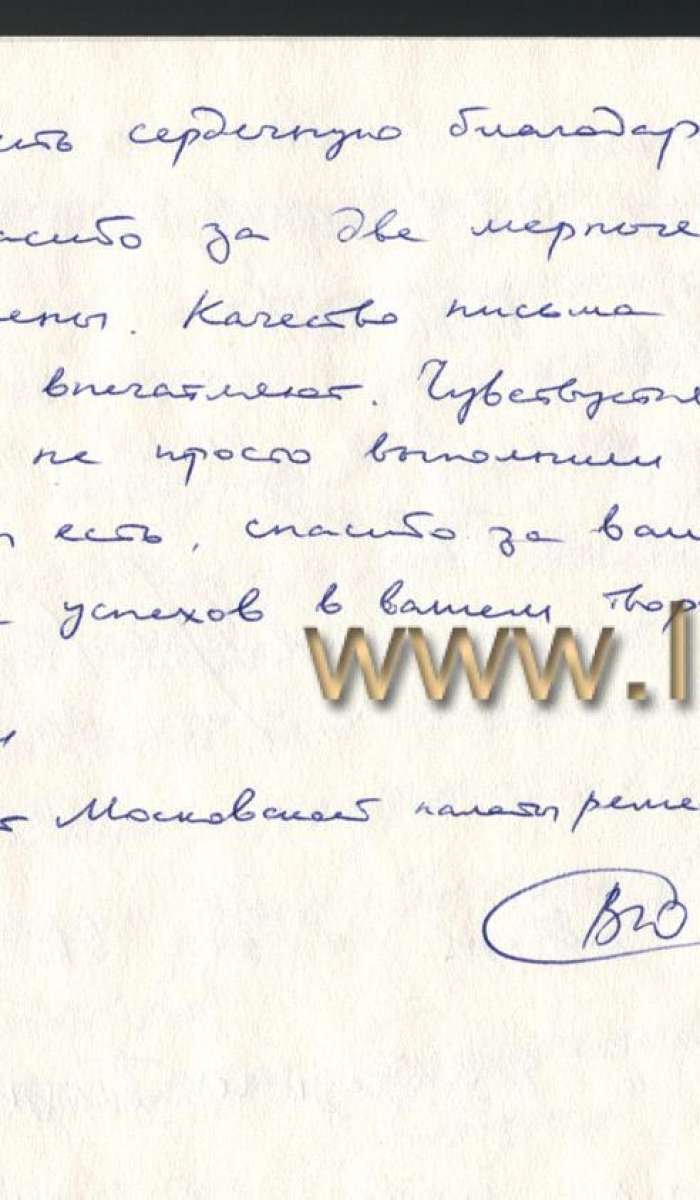 ить сердечную благодар
асибо за две мерноче
ены. Качество письма
впечатляют. Чувствуется
не просто выполнили
есть, спасибо за ваш
успехов в вашем твор
www.l
Московской палаты реме